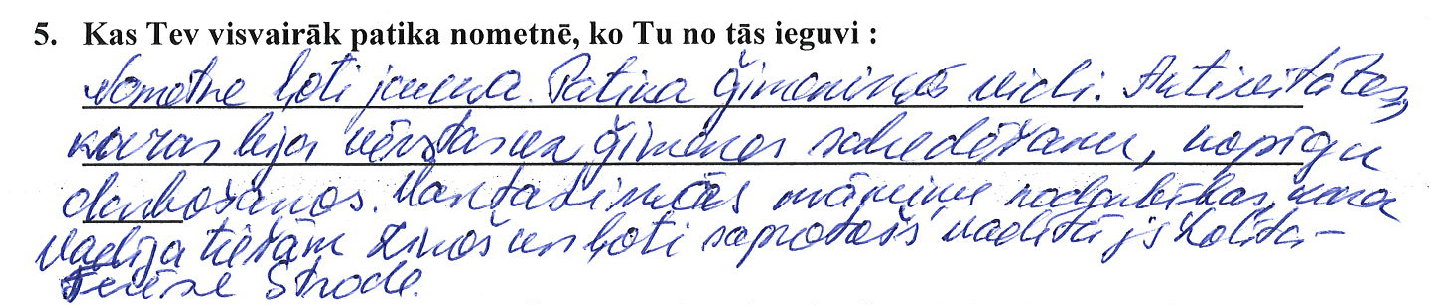 5. Kas Tev visvairāk patika nometnē, ko Tu no tās ieguvi :
Nometne ļoti jauka. Patika ģimeniskās vidi. Aktivitātes,
kuras bija vērstas uz ģimenes saliedēšanu, kopīgu
darbošanos. māmiņu nodarbības, kura
Vadīja tiešām zinošs un ļoti saprotošs vadītājs Lolita-
Terēze Strode.